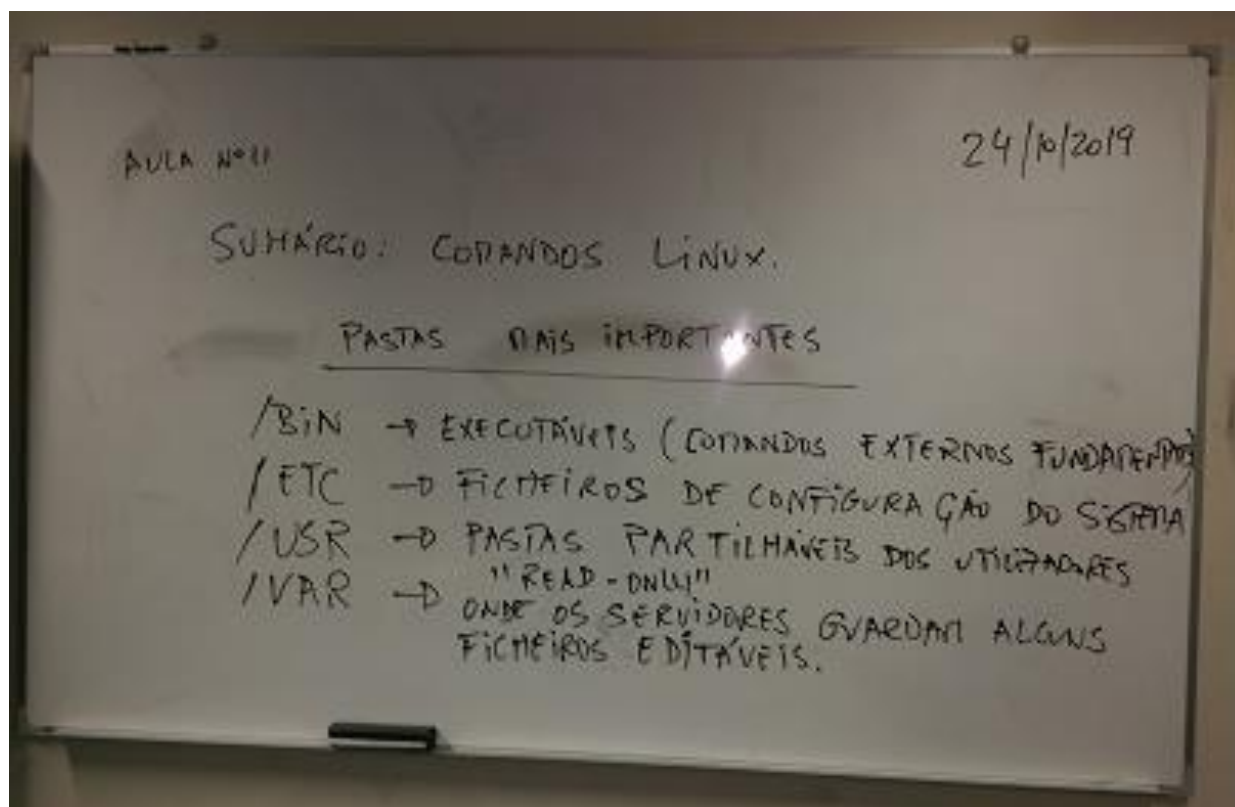 AULA Nº11
24/10/2019
SUMÁRIO: COMANDOS LINUX.
PASTAS MAIS IMPORTANTES
/BIN → EXECUTÁVEIS (COMANDOS EXTERNOS FUNDAMENTAIS)
/ETC → FICHEIROS DE CONFIGURAÇÃO DO SISTEMA
/USR → PASTAS PARTILHÁVEIS DOS UTILIZADORES
"READ-ONLY"
/VAR → ONDE OS SERVIDORES GUARDAM ALGUNS
FICHEIROS EDITÁVEIS.